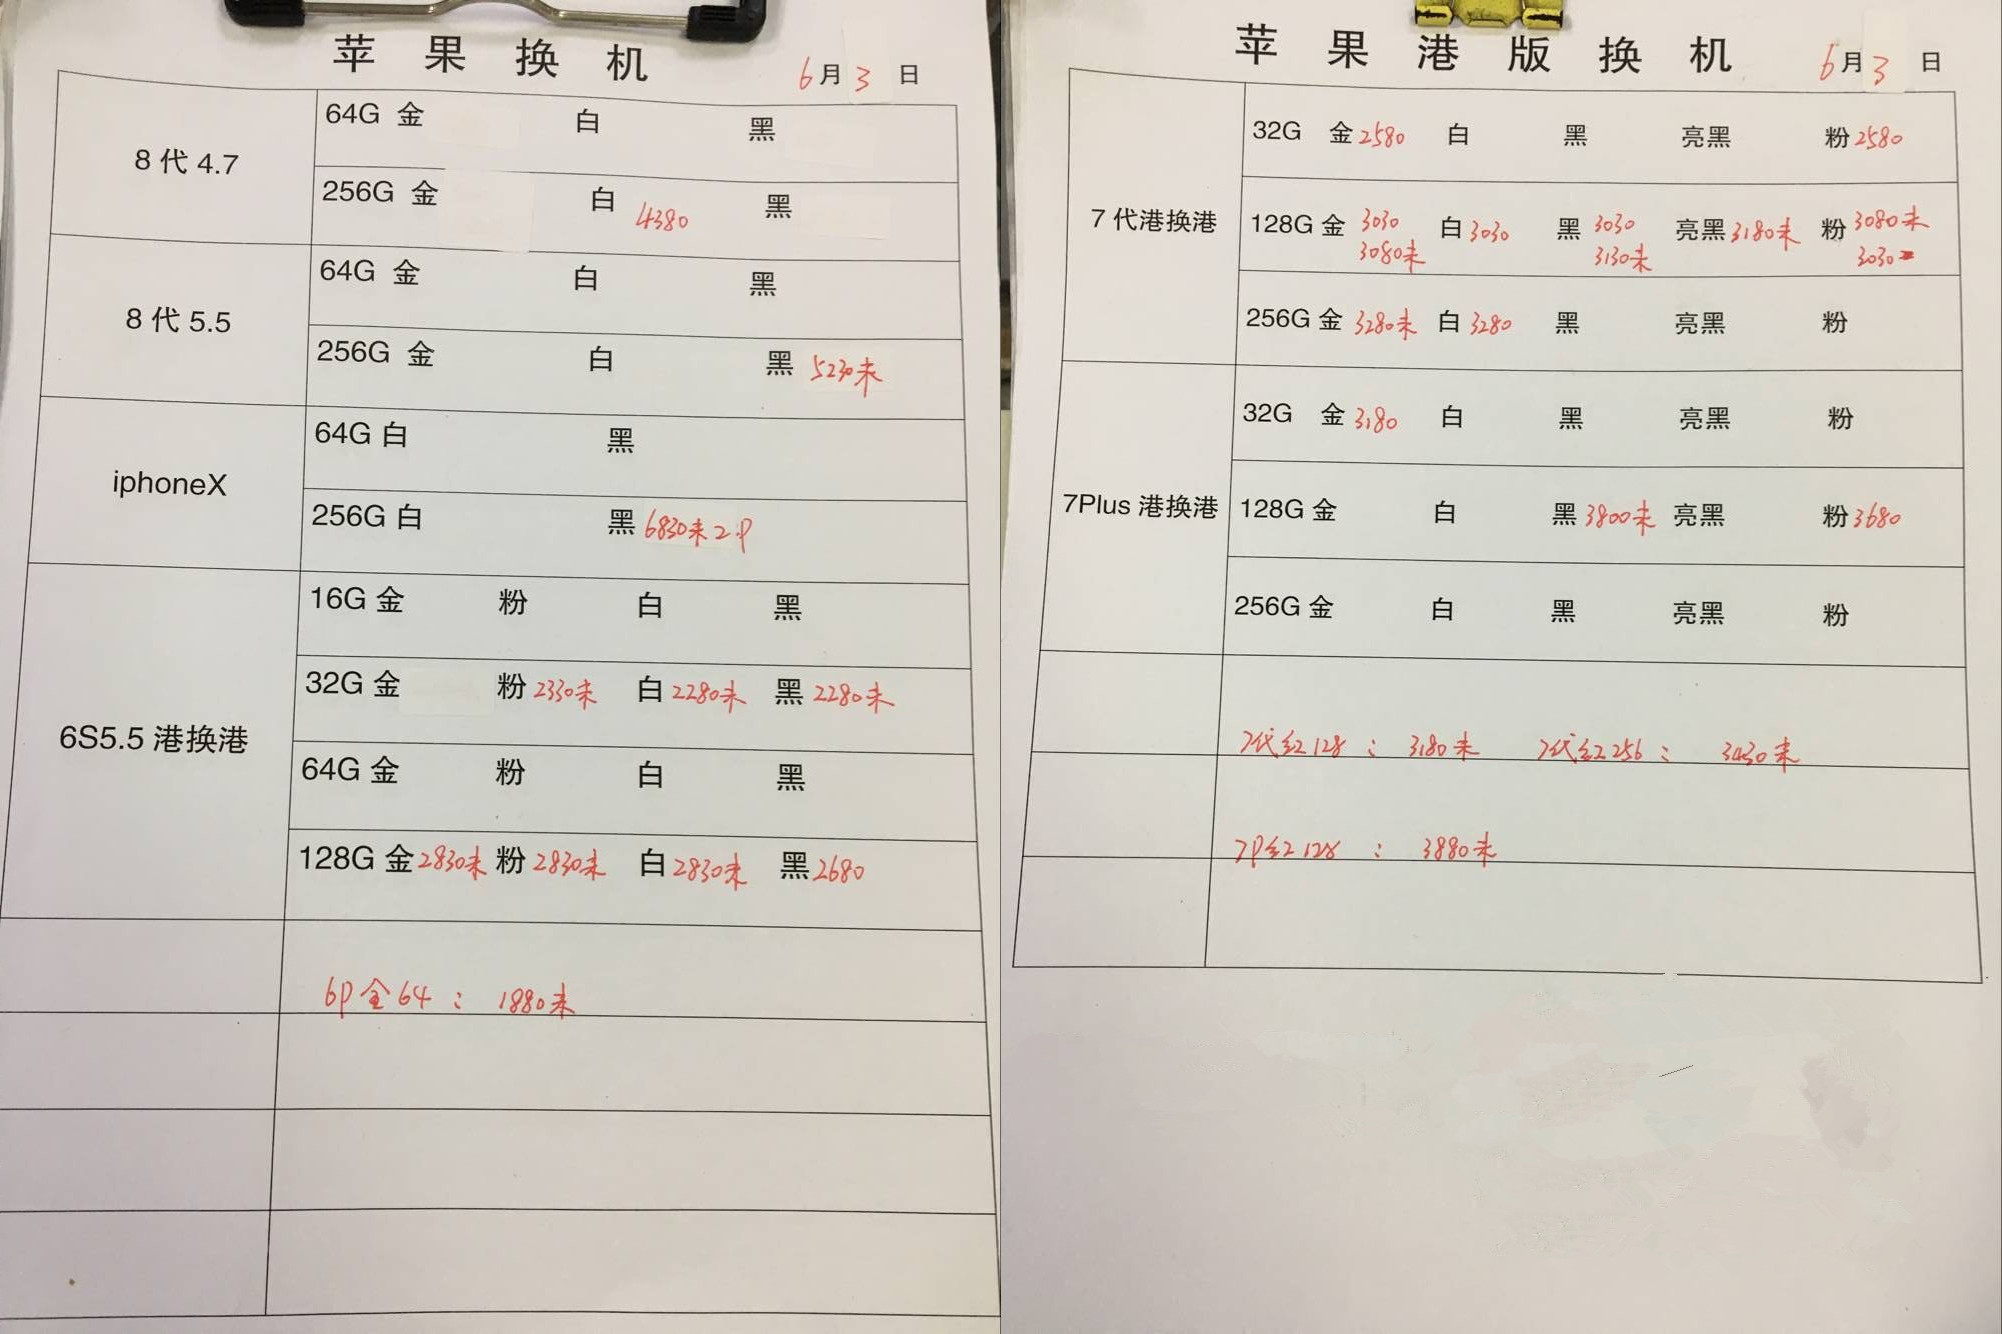 苹果换机 6月3日
8代4.7
64G 金 白 黑
256G 金 白 4380 黑
8代5.5
64G 金 白 黑
256G 金 白 黑 5230未
iphoneX
64G 白 黑
256G 白 黑 6830未2.P
6S5.5港换港
16G 金 粉 白 黑
32G 金 粉 2330未 白 2280未 黑 2280未
64G 金 粉 白 黑
128G 金 2830未 粉 2830未 白 2830未 黑 2680
6P金64： 1880未
苹果港版换机 6月3日
7代港换港
32G 金 2580 白 黑 亮黑 粉 2580
128G 金 3030 白 3030 黑 3030 亮黑 3180未 粉 3080未
3080未 3130未 3030
256G 金 3280未 白 3280 黑 亮黑 粉
7Plus港换港
32G 金 3180 白 黑 亮黑 粉
128G 金 白 黑 3800未 亮黑 粉 3680
256G 金 白 黑 亮黑 粉
7代红128： 3180未 7代红256： 3430未
7P红128： 3880未